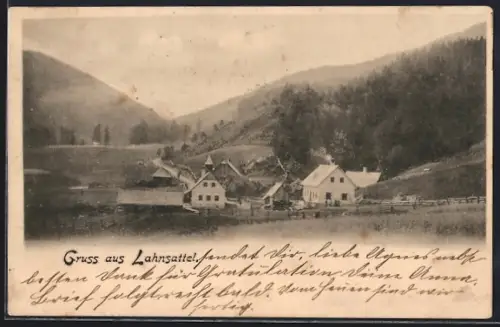 Gruss aus Lahnsattel, sendet Dir, liebe Agnes nebst
besten Dank für Gratulation Deine Anna.
Brief folgt recht bald. Vom Heuen sind wir
fertig.